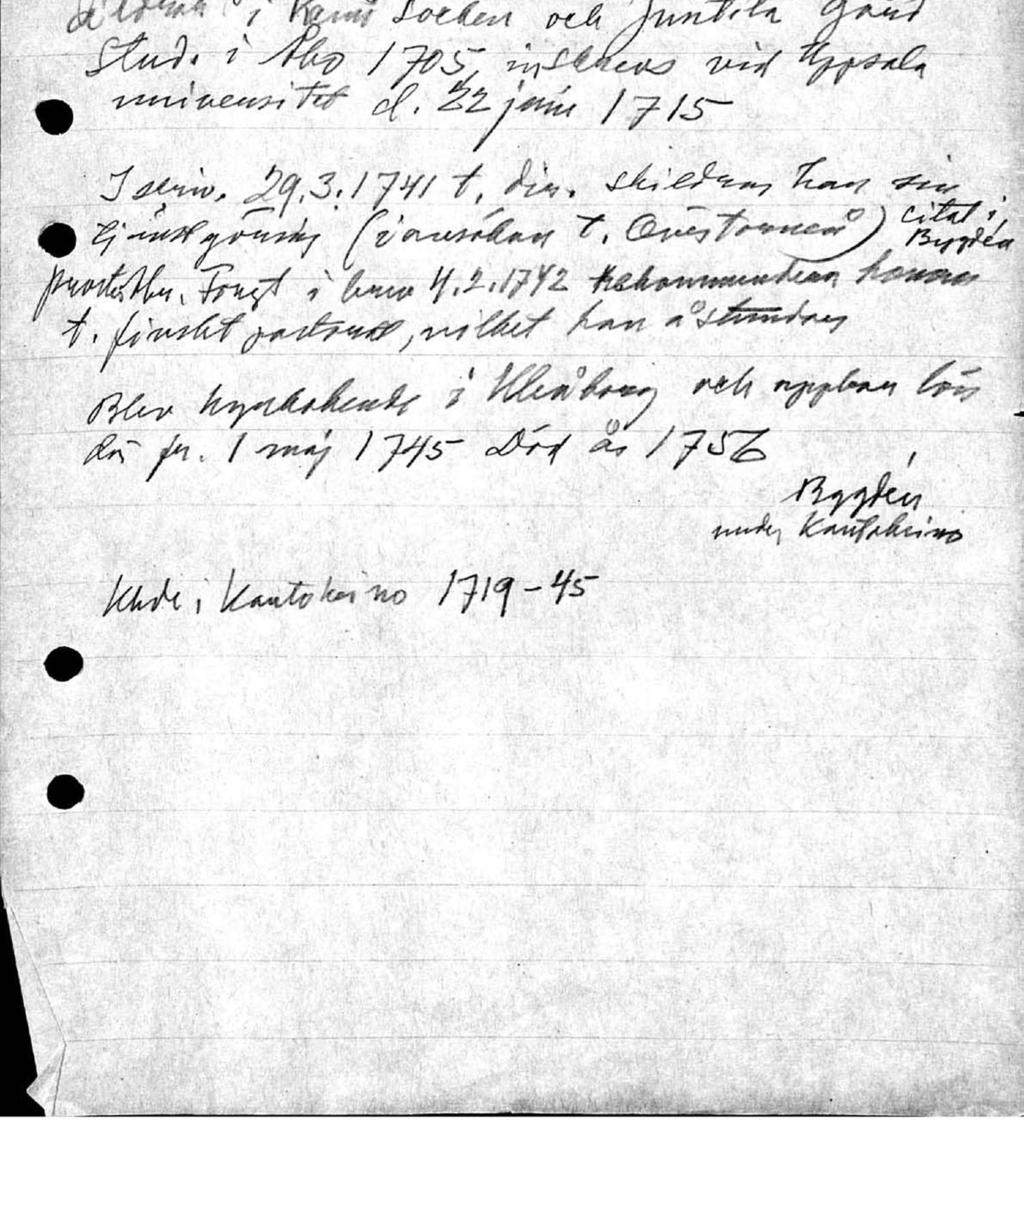 i Kemi Socken och Juntila Gård
Stud. i Åbo 1705, inskrevs vid Uppsala
universitet d. 22 juni 1715
I skriv. 29.3.1741 t. din. skildrar han sin
tjänstgöring (i ansökan t. Övertorneå) citat i
Bygdén
Fougt i brev 4.2.1742 rekommenderar honom
t. finskt pastorat, vilket han åstundar
Blev kyrkoherde i Uleåborg och uppbar lön
där fr. 1 maj 1745 Död år 1756
Bygdén
under Kautokeino
Khde i Kautokeino 1719-45